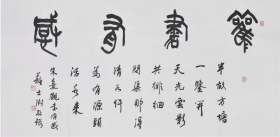 觀書有感
半畝方塘
一鑒開
天光雲影
共徘徊
問渠那得
清如許
為有源頭
活水來
朱熹觀書有感
蘇士澍